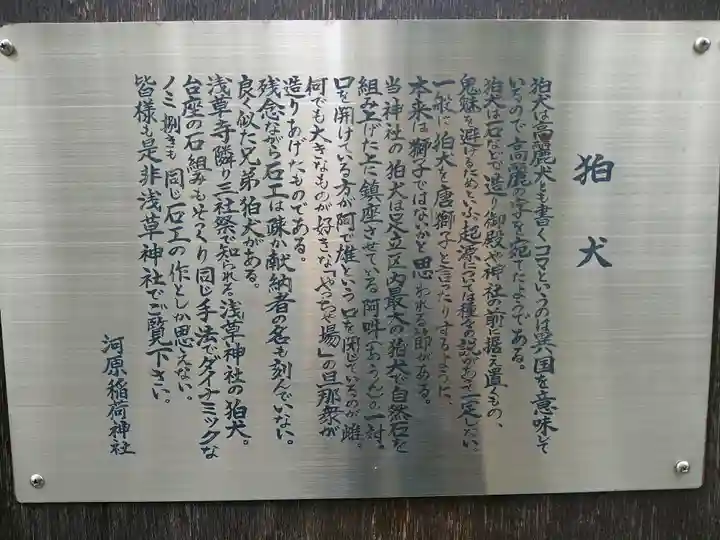 狛犬
狛犬は高麗犬とも書くコマというのは異国を意味して
いるので高麗の字を宛てたようである。
狛犬は石などで造り御殿や神社の前に据え置くもの、
鬼魅を避けるためといふ起源については種々の説があって一定しない。
一般に狛犬を唐獅子と言ったりするように、
本来は獅子ではないかと思われる節がある。
当神社の狛犬は足立区内最大の狛犬で自然石を
組み上げた上に鎮座させている阿吽(あうん)の一対。
口を開けている方が阿で雄という口を閉じているのが雌。
何でも大きなものが好きな「やっちゃ場」の旦那衆が
造りあげたものである。
残念ながら石工は疎か献納者の名も刻んでいない。
良く似た兄弟狛犬がある。
浅草寺隣り三社祭で知られる浅草神社の狛犬。
台座の石組みもそっくり同じ手法でダイナミックな
ノミ捌きも同じ石工の作としか思えない。
皆様も是非浅草神社でご覧下さい。
河原稲荷神社